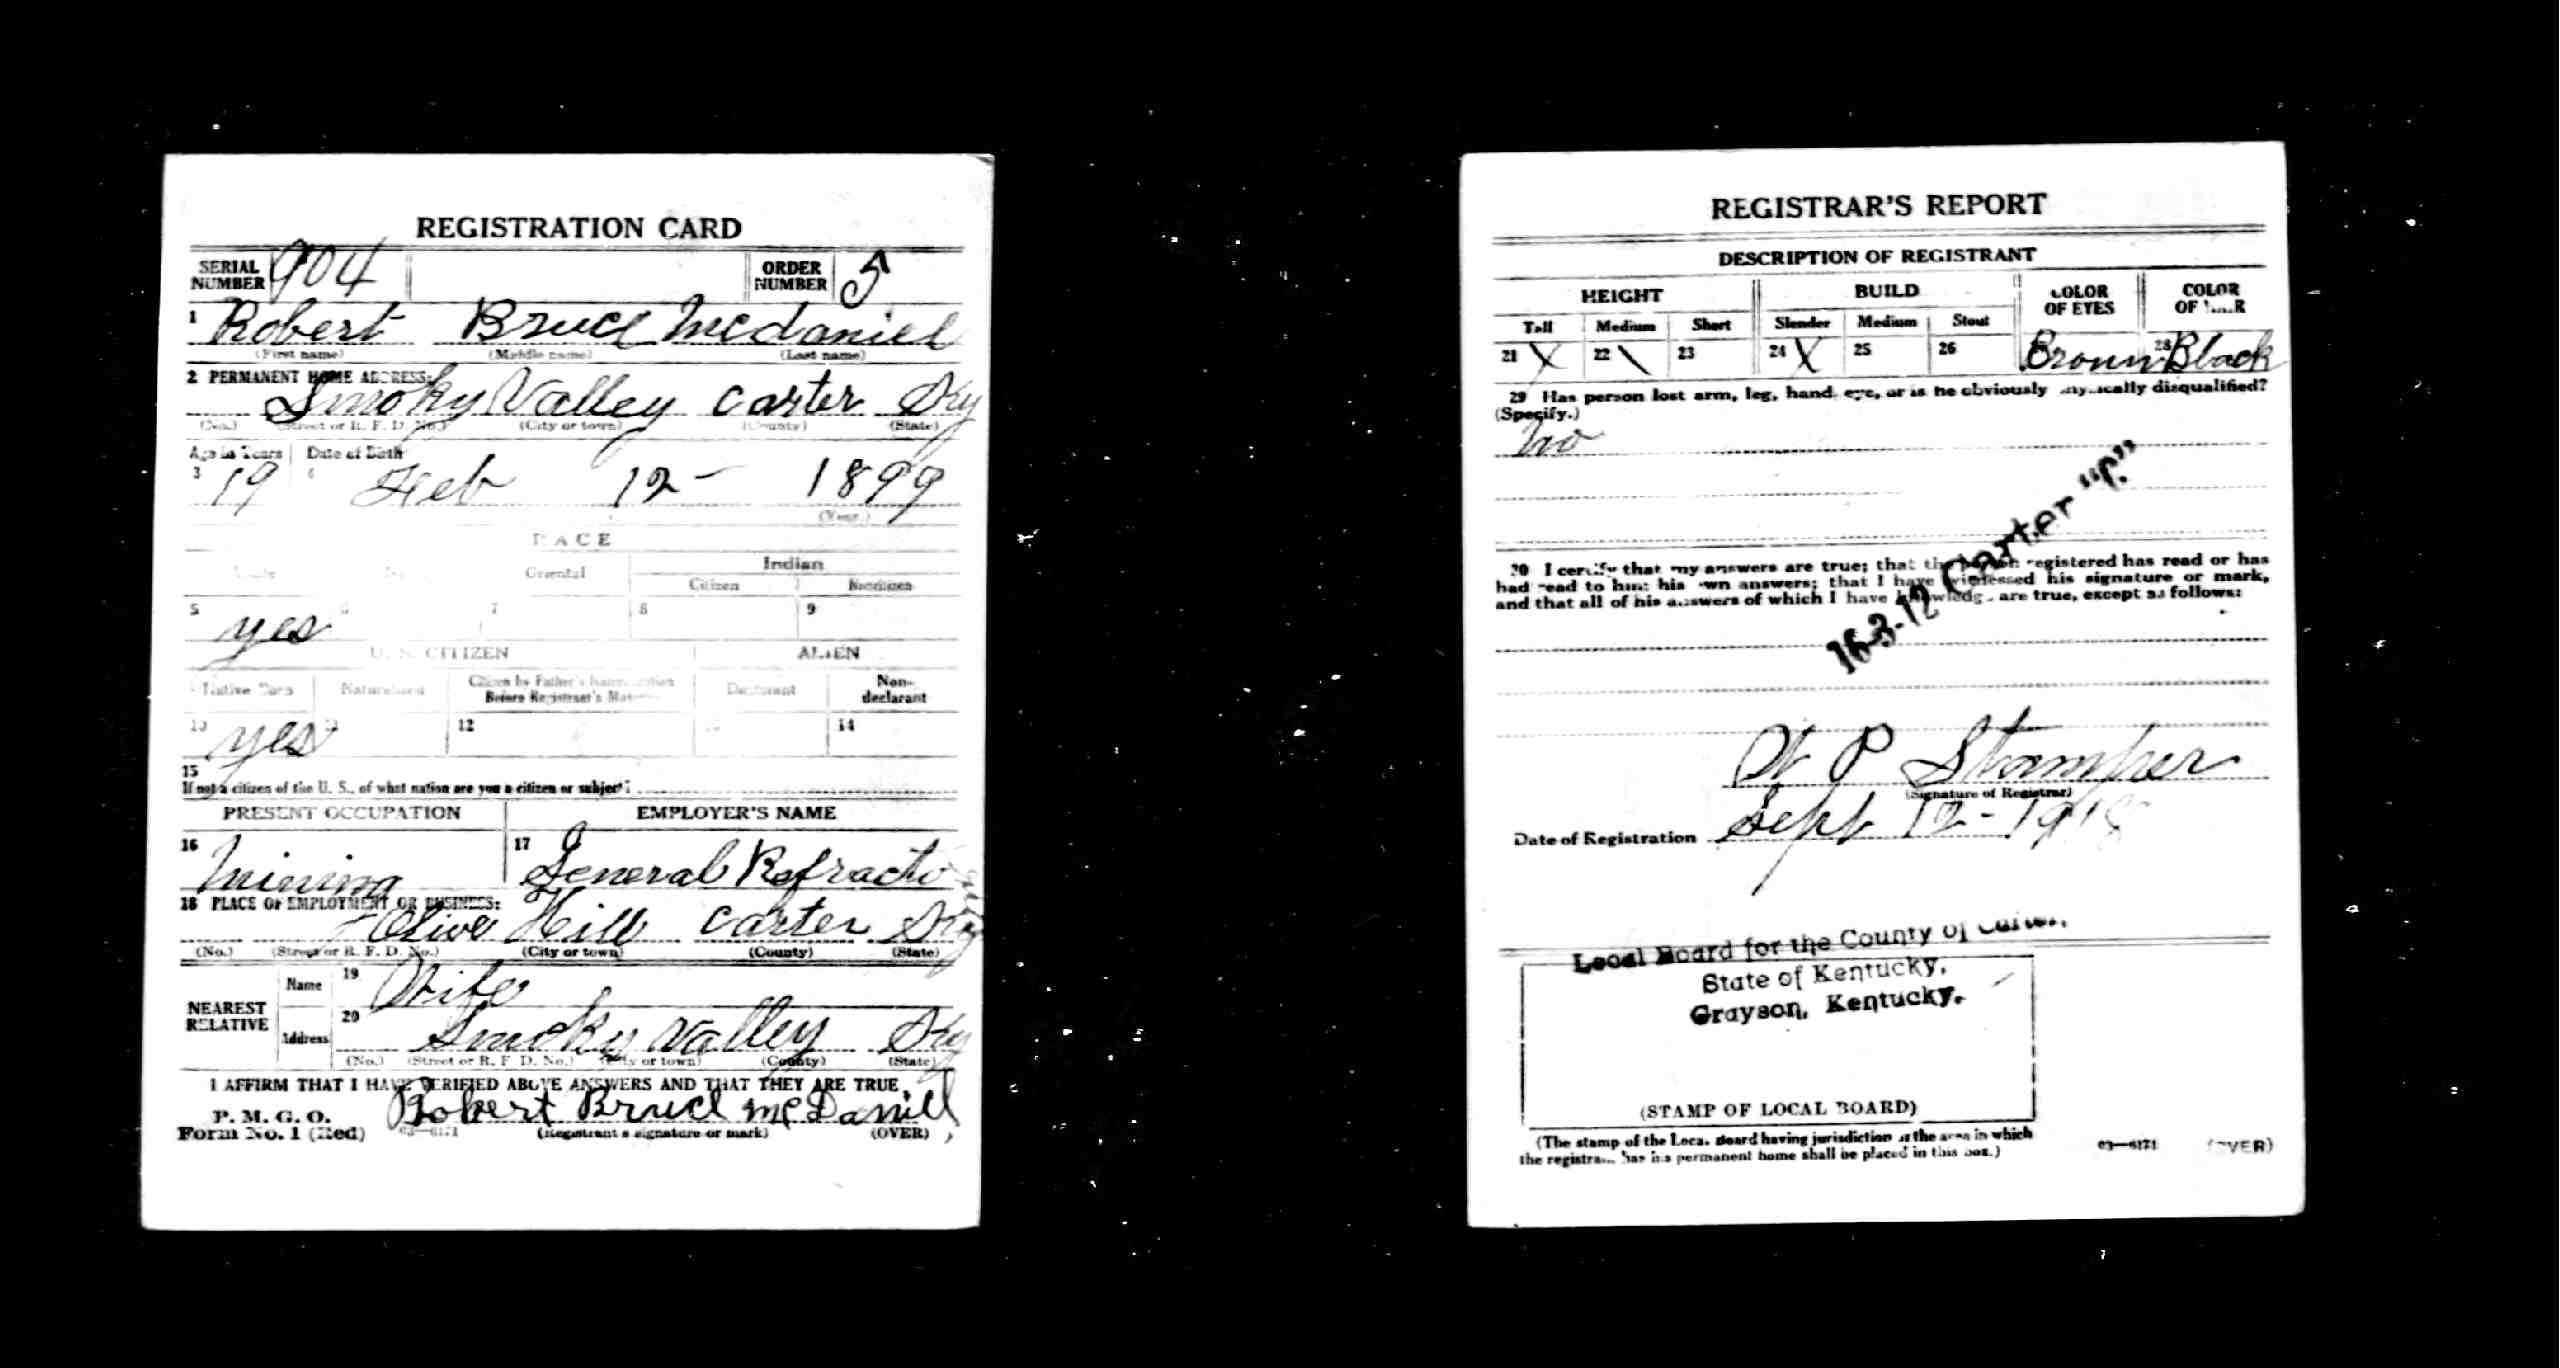 REGISTRATION CARD
SERIAL NUMBER 904 ORDER NUMBER 5
1 Robert Bruce Mcdaniel
(First name) (Middle name) (Last name)
2 PERMANENT HOME ADDRESS:
Smoky Valley Carter Ky
(No.) (Street or R. F. D. No.) (City or town) (County) (State)
Age in Years Date of Birth
3 19 4 Feb 12 - 1899
(Year.)
RACE
Oriental Indian
Citizen Noncitizen
5 yes 6 7 8 9
U. S. CITIZEN ALIEN
Native Born Naturalized Citizen by Father's Before Registrant's Declarant Non-declarant
10 yes 11 12 14
15
If not a citizen of the U. S., of what nation are you a citizen or subject?
PRESENT OCCUPATION EMPLOYER'S NAME
16 Mining 17 General Refracto
18 PLACE OF EMPLOYMENT OR BUSINESS:
Olive Hill Carter Ky
(No.) (Street or R. F. D. No.) (City or town) (County) (State)
NEAREST RELATIVE
Name 19 Wife
Address 20 Smoky Valley Ky
(No.) (Street or R. F. D. No.) (City or town) (County) (State)
I AFFIRM THAT I HAVE VERIFIED ABOVE ANSWERS AND THAT THEY ARE TRUE
P. M. G. O.
Form No. 1 (Red) Robert Bruce McDaniel
03—6171 (Registrant's signature or mark) (OVER)
REGISTRAR'S REPORT
DESCRIPTION OF REGISTRANT
HEIGHT BUILD COLOR OF EYES COLOR OF HAIR
Tall Medium Short Slender Medium Stout
21 X 22 \ 23 24 X 25 26 Brown 28 Black
29 Has person lost arm, leg, hand, eye, or is he obviously physically disqualified?
(Specify.)
No
30 I certify that my answers are true; that the person registered has read or has
had read to him his own answers; that I have witnessed his signature or mark,
and that all of his answers of which I have knowledge are true, except as follows:
16-3-12 Carter "C."
W P Stamper
(Signature of Registrar)
Date of Registration Sept 12-1918
Local Board for the County of Carter,
State of Kentucky,
Grayson, Kentucky.
(STAMP OF LOCAL BOARD)
(The stamp of the Local Board having jurisdiction of the area in which
the registrant has his permanent home shall be placed in this box.)
03—6171 (OVER)